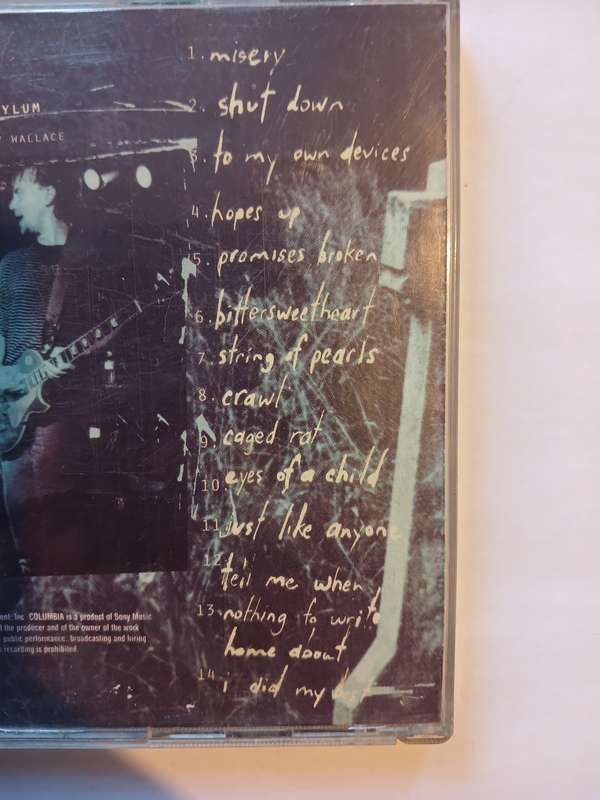 YLUM
WALLACE
1. misery
2. shut down
3. to my own devices
4. hopes up
5. promises broken
6. bittersweetheart
7. string of pearls
8. crawl
9. caged rat
10. eyes of a child
11. just like anyone
12. tell me when
13. nothing to write
home about
14. i did my best
ent Inc. COLUMBIA is a product of Sony Music
the producer and of the owner of the work
public performance, broadcasting and hiring
recording is prohibited.